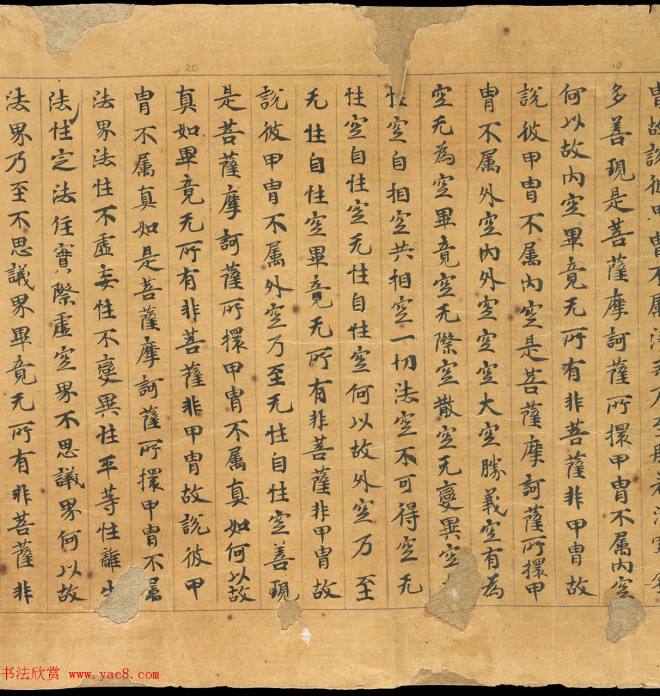 胄故說彼甲胄不屬淨
多善現是菩薩摩訶薩所擐甲胄不属內空
何以故內空畢竟无所有非菩薩非甲胄故
說彼甲胄不属內空是菩薩摩訶薩所擐甲
胄不属外空內外空空空大空勝義空有為
空无為空畢竟空无際空散空无變異空
性空自相空共相空一切法空不可得空无
性空自性空无性自性空何以故外空乃至
无性自性空畢竟无所有非菩薩非甲胄故
說彼甲胄不属外空乃至无性自性空善現
是菩薩摩訶薩所擐甲胄不属真如何以故
真如畢竟无所有非菩薩非甲胄故說彼甲
胄不属真如是菩薩摩訶薩所擐甲胄不属
法界法性不虛妄性不變異性平等性離生
法性定法住實際虛空界不思議界何以故
法界乃至不思議界畢竟无所有非菩薩非
20
10
书法欣赏 www.yac8.com